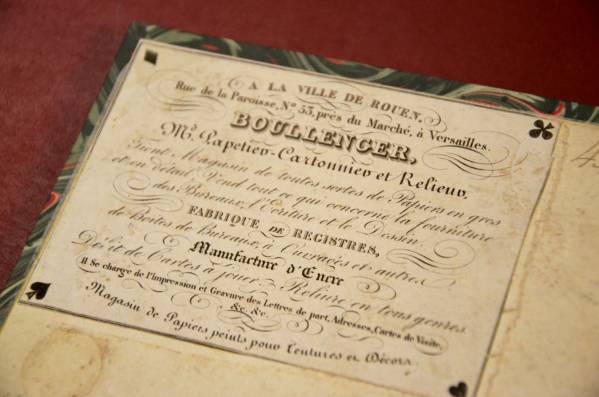 A LA VILLE DE ROUEN,
Rue de la Paroisse, Nº 53, près du Marché, à Versailles.
BOULLENGER,
Md. Papetier-Cartonnier et Relieur,
Tient Magasin de toutes sortes de Papiers en gros
et en détail, Vend tout ce qui concerne la fourniture
des Bureaux, l'Ecriture et le Dessin.
FABRIQUE DE REGISTRES,
de Boites de Bureaux, à Ouvrages et autres.
Manufacture d'Encre
Dépôt de Cartes à jouer, Reliure en tous genres.
Il Se charge de l'Impression et Gravure des Lettres de part, Adresses, Cartes de Visite,
&c. &c.
Magasin de Papiers peints pour Tentures et Décors.
4